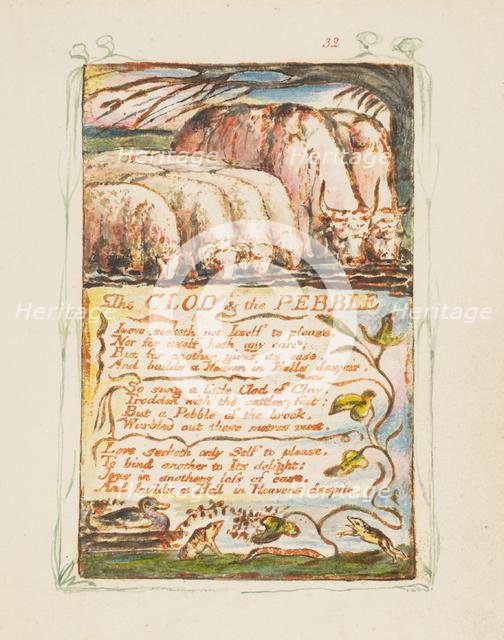 32
Heritage Heritage
The CLOD & the PEBBLE
Heritage Heritage Heritage
Love seeketh not Itself to please,
Nor for itself hath any care;
But for another gives its ease,
And builds a Heaven in Hells despair.
So sung a little Clod of Clay,
Trodden with the cattles feet;
But a Pebble of the brook,
Warbled out these metres meet.
Love seeketh only Self to please,
To bind another to Its delight:
Joys in anothers loss of ease,
And builds a Hell in Heavens despite.
Heritage Heritage